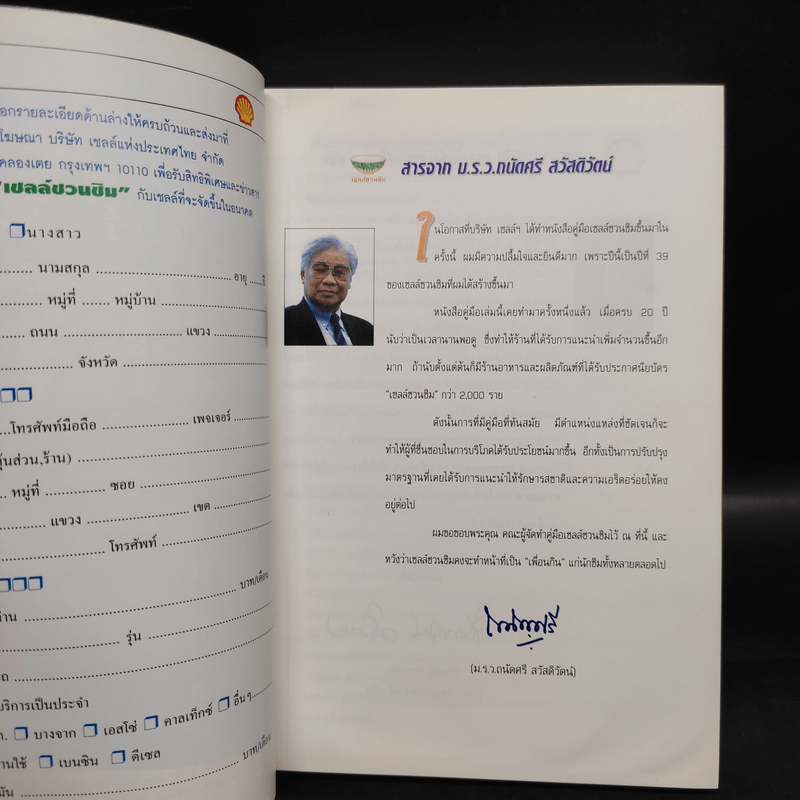 อกรายละเอียดด้านล่างให้ครบถ้วนและส่งมาที่
โฆษณา บริษัท เชลล์แห่งประเทศไทย จำกัด
คลองเตย กรุงเทพฯ 10110 เพื่อรับสิทธิพิเศษและข่าวสาร
"เชลล์ชวนชิม" กับเชลล์ที่จะจัดขึ้นในอนาคต
นางสาว
นามสกุล อายุ ปี
หมู่ที่ หมู่บ้าน
ถนน แขวง
จังหวัด
โทรศัพท์มือถือ เพจเจอร์
หุ้นส่วน,ร้าน)
หมู่ที่ ซอย
แขวง เขต
โทรศัพท์
บาท/เดือน
รุ่น
บริการเป็นประจำ
บางจาก เอสโซ่ คาลเท็กซ์ อื่นๆ
บาท/เดือน
เบนซิน ดีเซล
บาท/เดือน
เชลล์ชวนชิม
สารจาก ม.ร.ว.ถนัดศรี สวัสดิวัตน์
ในโอกาสที่บริษัท เชลล์ฯ ได้ทำหนังสือคู่มือเชลล์ชวนชิมขึ้นมาใน
ครั้งนี้ ผมมีความปลื้มใจและยินดีมาก เพราะปีนี้เป็นปีที่ 39
ของเชลล์ชวนชิมที่ผมได้สร้างขึ้นมา
หนังสือคู่มือเล่มนี้เคยทำมาครั้งหนึ่งแล้ว เมื่อครบ 20 ปี
นับว่าเป็นเวลานานพอดู ซึ่งทำให้ร้านที่ได้รับการแนะนำเพิ่มจำนวนขึ้นอีก
มาก ถ้านับตั้งแต่ต้นก็มีร้านอาหารและผลิตภัณฑ์ที่ได้รับประกาศนียบัตร
"เชลล์ชวนชิม" กว่า 2,000 ราย
ดังนั้นการที่มีคู่มือที่ทันสมัย มีตำแหน่งแหล่งที่ชัดเจนก็จะ
ทำให้ผู้ที่ชื่นชอบในการบริโภคได้รับประโยชน์มากขึ้น อีกทั้งเป็นการปรับปรุง
มาตรฐานที่เคยได้รับการแนะนำให้รักษารสชาติและความเอร็ดอร่อยให้คง
อยู่ต่อไป
ผมขอขอบพระคุณ คณะผู้จัดทำคู่มือเชลล์ชวนชิมไว้ ณ ที่นี้ และ
หวังว่าเชลล์ชวนชิมคงจะทำหน้าที่เป็น "เพื่อนกิน" แก่นักชิมทั้งหลายตลอดไป
(ม.ร.ว.ถนัดศรี สวัสดิวัตน์)